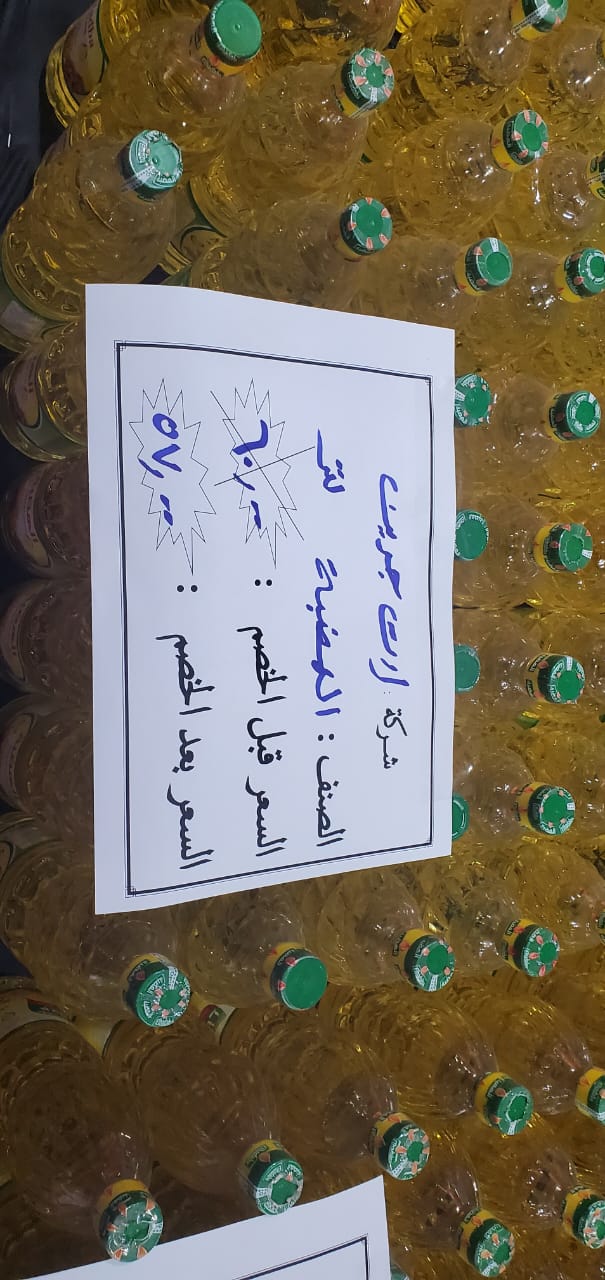 شركة : ارت جرين
الصنف : الهضبة لتر
السعر قبل الخصم : ٦٠٫٠٠
السعر بعد الخصم : ٥٧٫٠٠